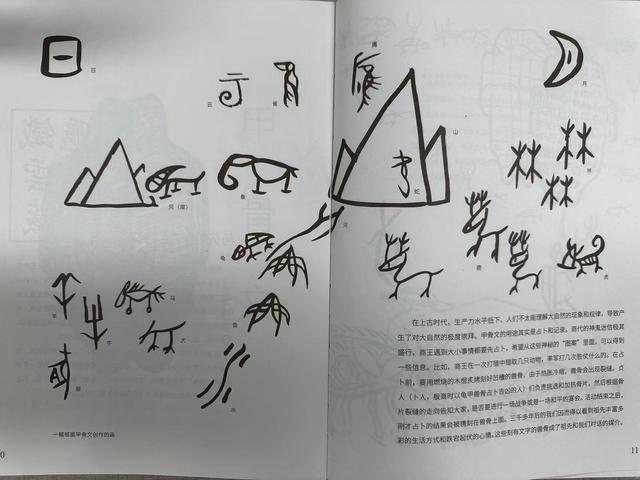 日
云
雀
兕（犀）
象
龟
河
羊
牛
马
犬
鱼
水
一幅根据甲骨文创作的画
鹰
月
山
蛇
林
鹿
虎
在上古时代，生产力水平低下，人们不太能理解大自然的现象和规律，导致产
生了对大自然的极度崇拜。甲骨文的用途其实是占卜和记录。商代的神鬼迷信极其
盛行，商王遇到大小事情都要先占卜，希望从这些神秘的“图案”里面，可以得到
一些信息。比如，商王在一次打猎中猎取几只动物，率军打几次胜仗什么的。在占
卜前，要用燃烧的木棍炙烤刻好凹槽的兽骨。由于热胀冷缩，兽骨会出现裂缝。贞
人（卜人，殷商时以龟甲兽骨占卜吉凶的人）们负责挑选和加热骨片，然后根据骨
片裂缝的走向告知大家，是否要进行一场战争或是一场和平的宴会。活动结束之后，
刚才占卜的结果会被镌刻在兽骨上面。三千多年后的我们因而得以看到祖先丰富多
彩的生活方式和跌宕起伏的心情。这些刻有文字的兽骨成了祖先和我们对话的媒介。
11